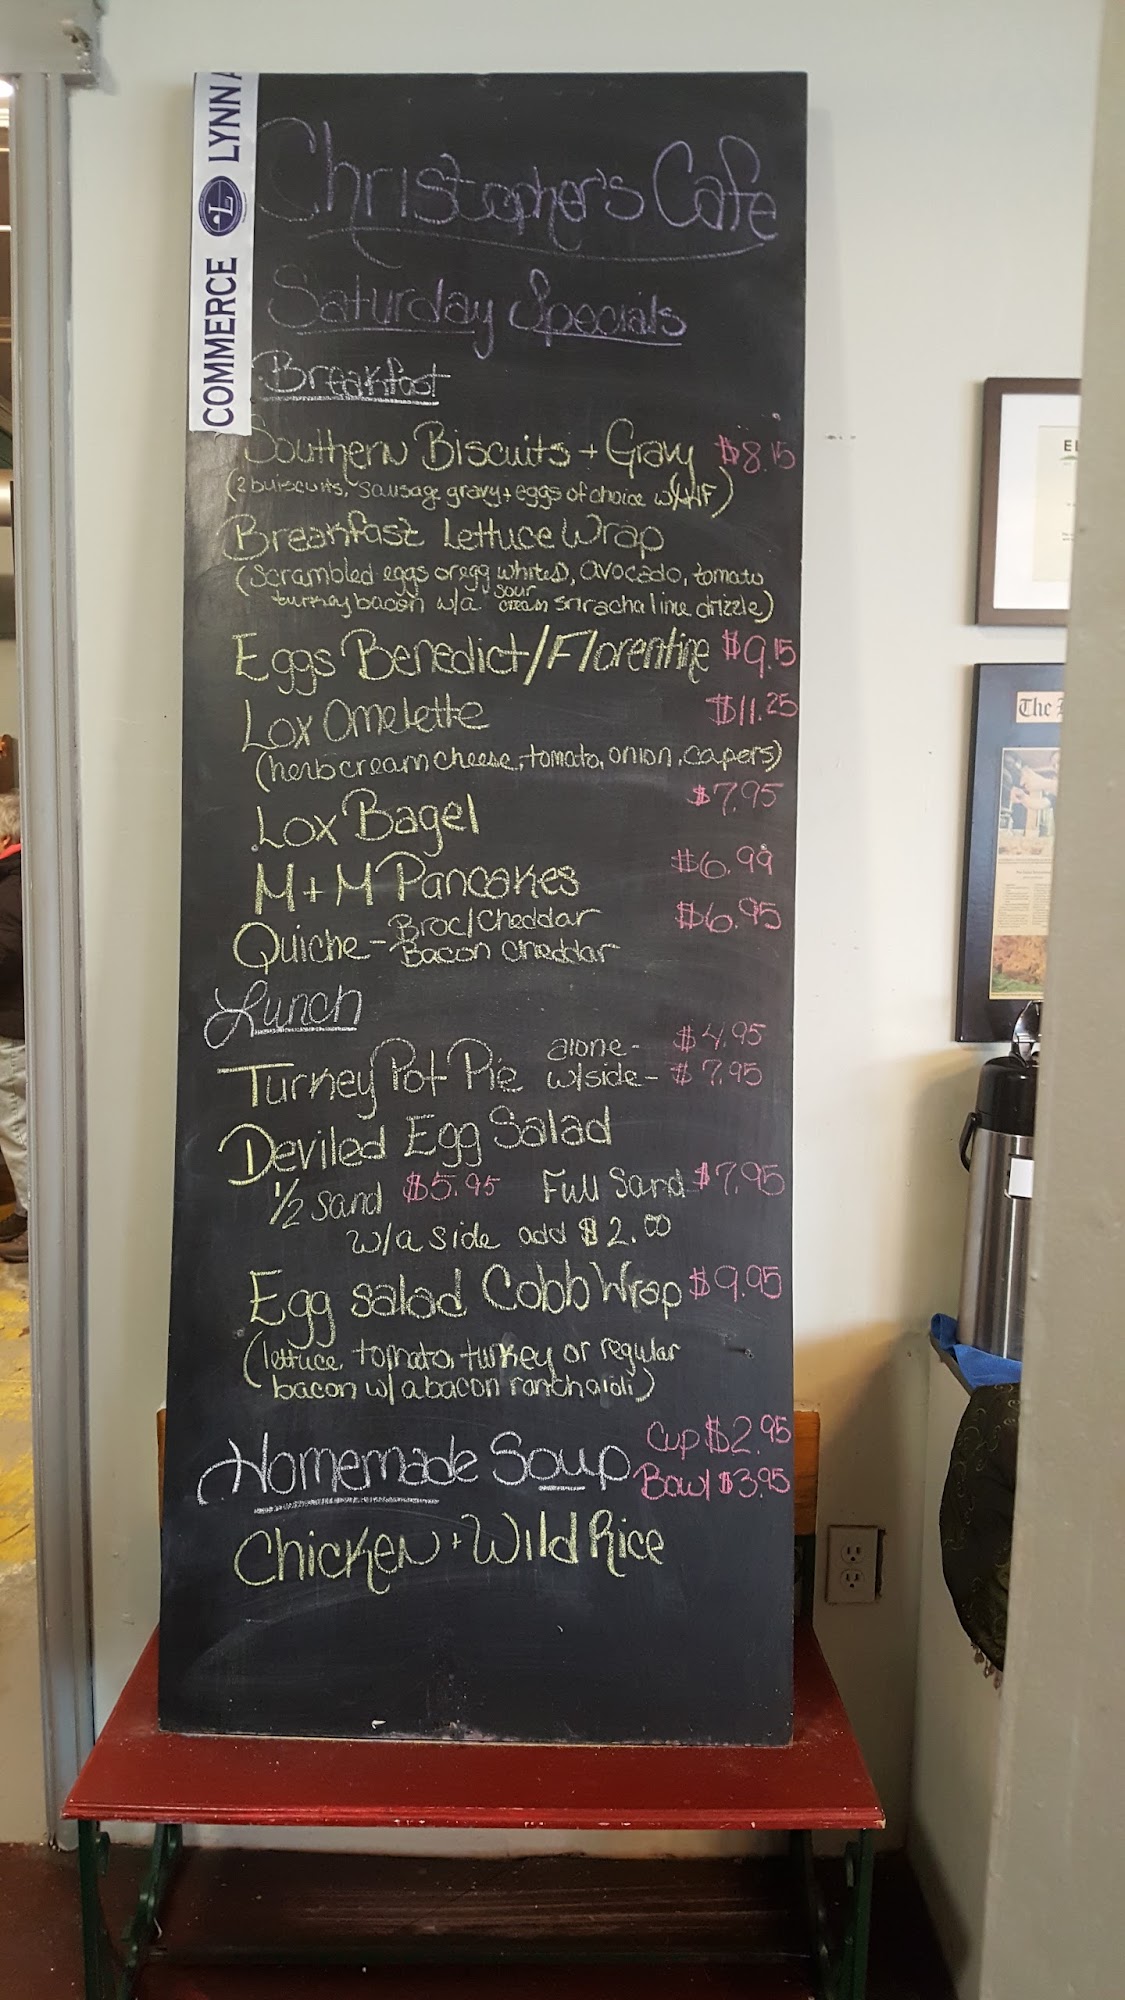 COMMERCE L LYNN A
Christopher's Cafe
Saturday Specials
Breakfast
Southern Biscuits + Gravy $8.15
(2 buiscuits, sausage gravy + eggs of choice w/HF)
Breakfast Lettuce Wrap
(scrambled eggs or egg whites), avocado, tomato
turkey bacon w/a sour cream sriracha lime drizzle)
Eggs Benedict/Florentine $9.15
Lox Omelette $11.25
(herb cream cheese, tomato, onion, capers)
Lox Bagel $7.95
M+M Pancakes $6.99
Quiche - Broc/Cheddar $6.95
Bacon Cheddar
Lunch
Turkey Pot Pie alone - $4.95
w/side - $7.95
Deviled Egg Salad
1/2 sand $5.95 Full Sand $7.95
w/a side add $2.00
Egg salad Cobb Wrap $9.95
(lettuce, tomato, turkey or regular
bacon w/ a bacon ranch aioli)
Homemade Soup Cup $2.95
Bowl $3.95
Chicken + Wild Rice
The